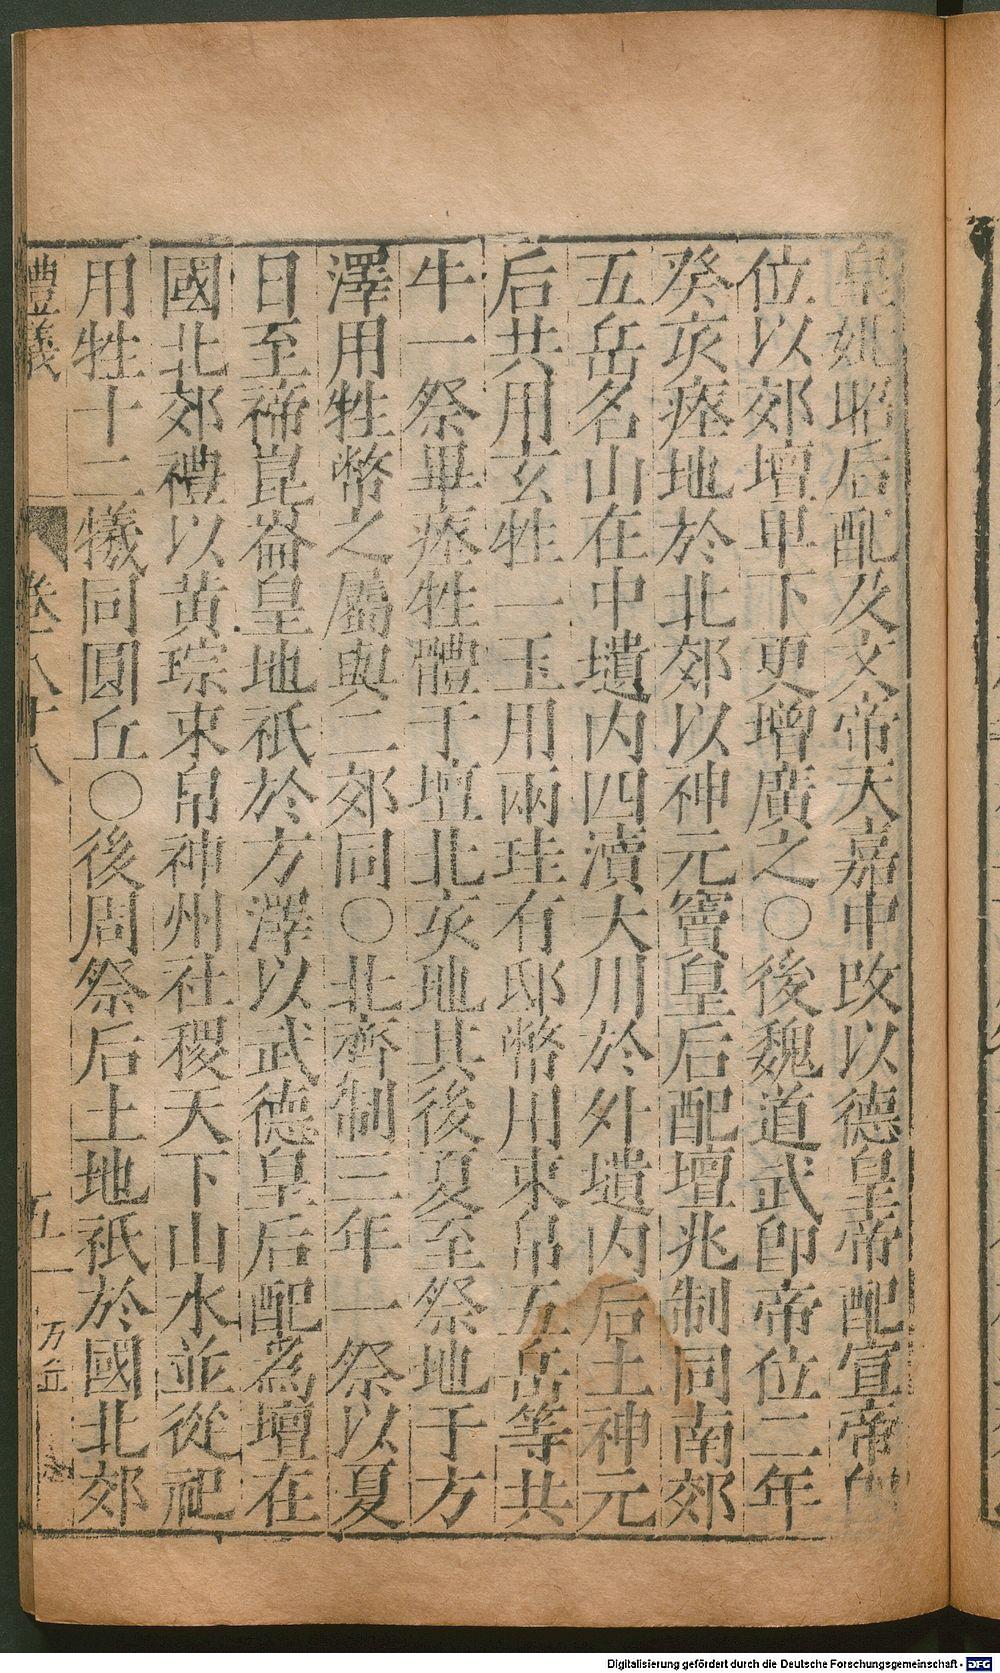 皇妣昭后配及文帝天嘉中改以德皇帝配宣帝即
位以郊壇卑下更增廣之○後魏道武即帝位二年
癸亥瘞地於北郊以神元竇皇后配壇兆制同南郊
五岳名山在中壝内四瀆大川於外壝内后土神元
后共用玄牲一玉用兩珪有邸幣用束帛五岳等共
牛一祭畢瘞牲體于壇北亥地其後夏至祭地于方
澤用牲幣之屬與二郊同○北齊制三年一祭以夏
日至禘崑崙皇地祇於方澤以武德皇后配為壇在
國北郊禮以黄琮束帛神州社稷天下山水並從祀
用牲十二犧同圓丘○後周祭后土地祇於國北郊
禮義
五一
方丘
Digitalisierung gefördert durch die Deutsche Forschungsgemeinschaft - DFG